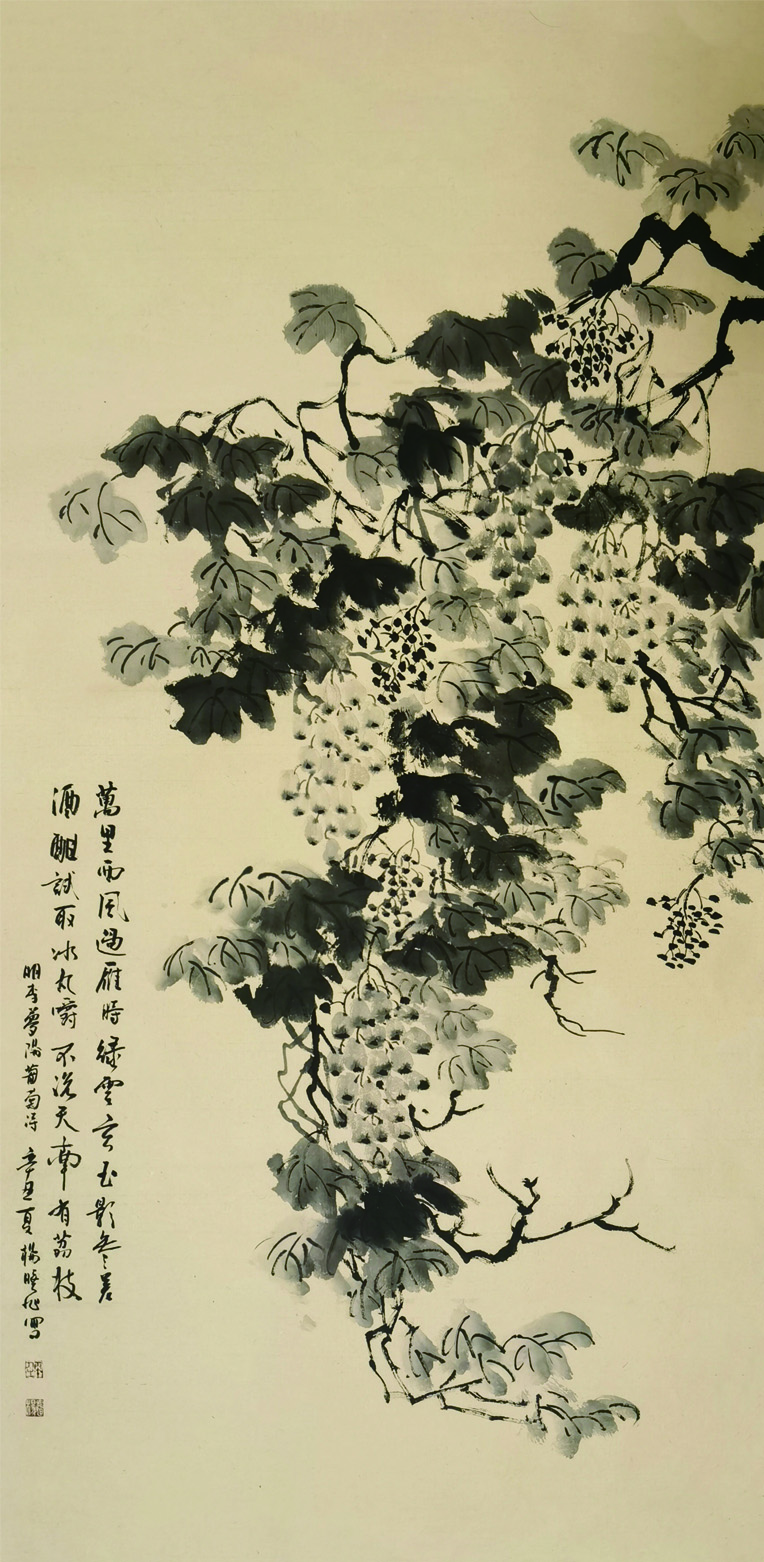 萬里西風過雁時綠雲玄玉影參差
酒酣試取冰丸嚼不說天南有荔枝
明李夢陽葡萄詩 辛丑夏楊曉 寫